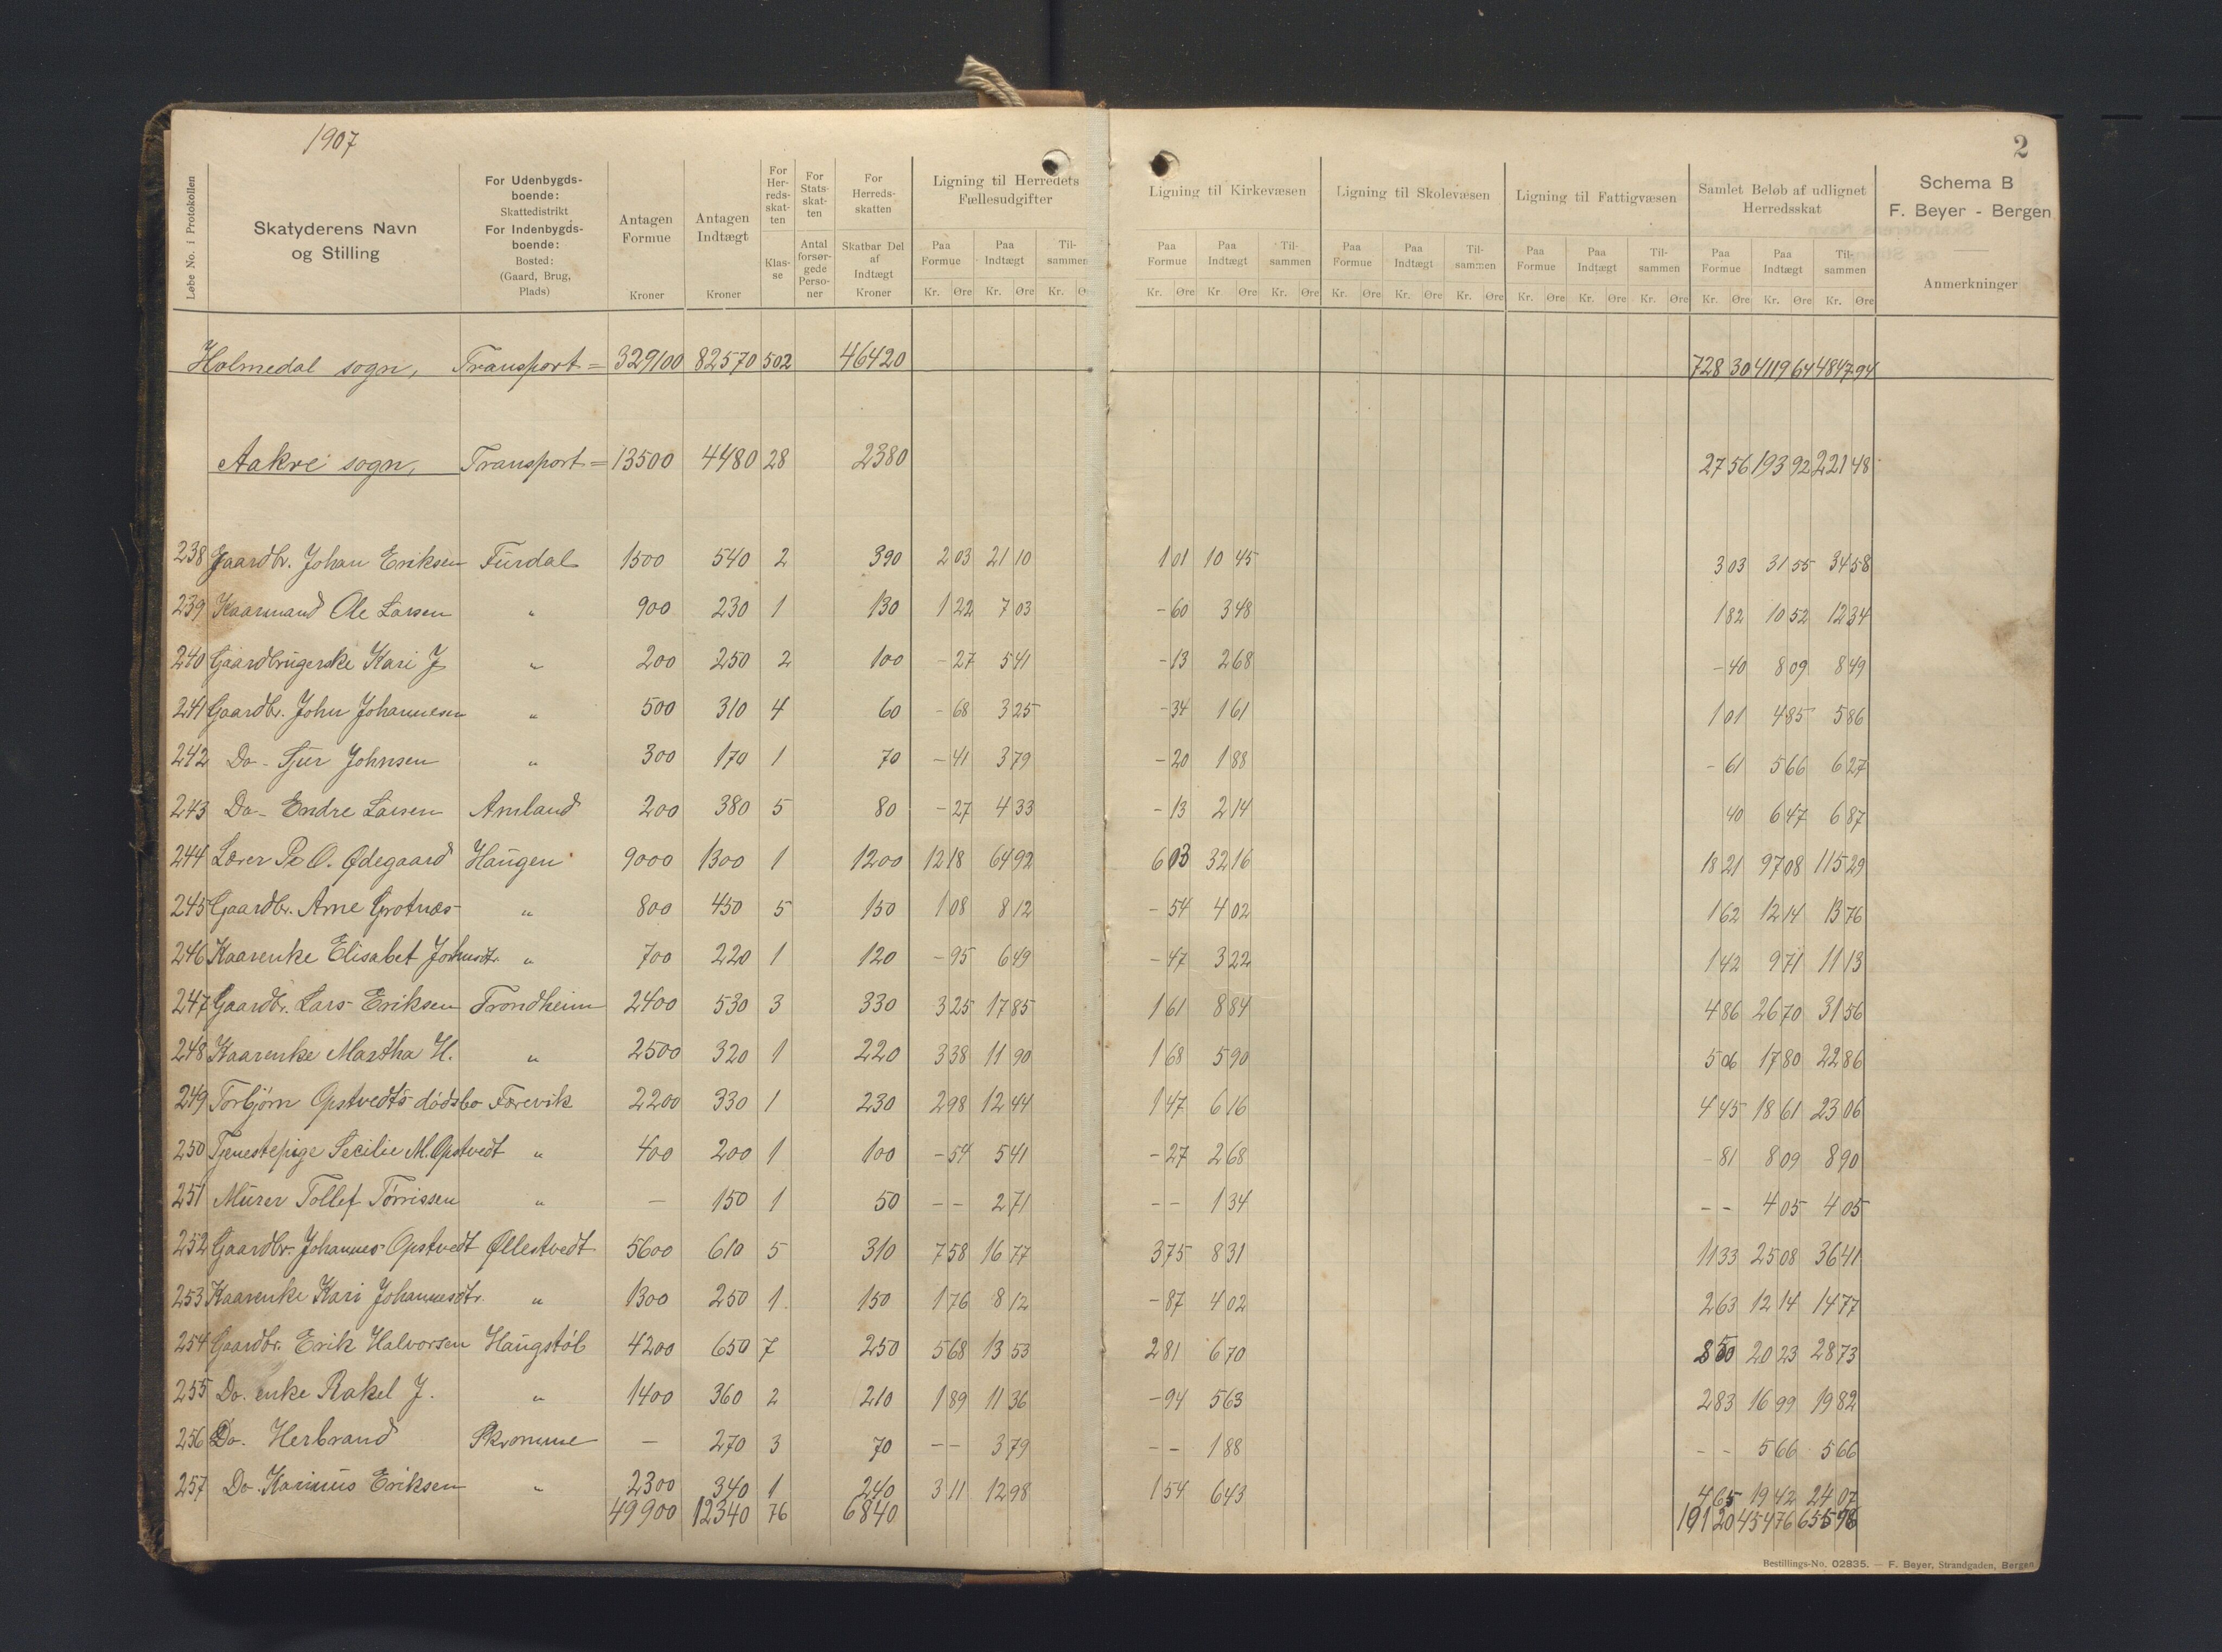 1907
2
Løbe No. i Protokollen
Skatyderens Navn og Stilling
For Udenbygds-boende: Skattedistrikt For Indenbygds-boende: Bosted: (Gaard, Brug, Plads)
Antagen Formue Kroner
Antagen Indtægt Kroner
For Her-reds-skat-ten Klas-se
For Stats-skat-ten Antal forsør-gede Perso-ner
For Herreds-skatten Skatbar Del af Indtægt Kroner
Ligning til Herredets Fællesudgifter
Paa Formue Paa Indtægt Til-sammen
Kr. Øre Kr. Øre Kr.
Ligning til Kirkevæsen
Paa Formue Paa Indtægt Til-sammen
Kr. Øre Kr. Øre Kr. Øre
Ligning til Skolevæsen
Paa Formue Paa Indtægt Til-sammen
Kr. Øre Kr. Øre Kr. Øre
Ligning til Fattigvæsen
Paa Formue Paa Indtægt Til-sammen
Kr. Øre Kr. Øre Kr. Øre
Samlet Beløb af udlignet Herredsskat
Paa Formue Paa Indtægt Til-sammen
Kr. Øre Kr. Øre Kr. Øre
Schema B
F. Beyer - Bergen
Anmerkninger
Holmedal sogn, Transport = 329100 82570 502 46420 728 30 4119 64 4847 94
Aakre sogn, Transport = 13500 4480 28 2380 27 56 193 92 221 48
238 Gaardbr. Johan Eriksen Furdal 1500 540 2 390 2 03 21 10 1 01 10 45 3 03 31 55 34 58
239 Kaarmand Ole Larsen " 900 230 1 130 1 22 7 03 - 60 3 48 1 82 10 52 12 34
240 Gaardbrugerske Kari J " 200 250 2 100 - 27 5 41 - 13 2 68 - 40 8 09 8 49
241 Gaardbr. John Johannesen " 500 310 4 60 - 68 3 25 - 34 1 61 1 01 4 85 5 86
242 Do - Sjur Johnsen " 300 170 1 70 - 41 3 79 - 20 1 88 - 61 5 66 6 27
243 Do - Endre Larsen Amland 200 380 5 80 - 27 4 33 - 13 2 14 40 6 47 6 87
244 Lærer P. O. Ødegaard Haugen 9000 1300 1 1200 12 18 64 92 6 03 32 16 18 21 97 08 115 29
245 Gaardbr. Arne Grotnæs " 800 450 5 150 1 08 8 12 - 54 4 02 1 62 12 14 13 76
246 Kaarenke Elisabet Johnsdt. " 700 220 1 120 - 95 6 49 - 47 3 22 1 42 9 71 11 13
247 Gaardbr. Lars Eriksen Trondheim 2400 530 3 330 3 25 17 85 1 61 8 84 4 86 26 70 31 56
248 Kaarenke Martha H. " 2500 320 1 220 3 38 11 90 1 68 5 90 5 06 17 80 22 86
249 Torbjørn Opstvedts dødsbo Færevik 2200 330 1 230 2 98 12 44 1 47 6 16 4 45 18 61 23 06
250 Tjenestepige Secilie M. Opstvedt " 400 200 1 100 - 54 5 41 - 27 2 68 - 81 8 09 8 90
251 Murer Tollef Tørrissen " - 150 1 50 - - 2 71 - - 1 34 - - 4 05 4 05
252 Gaardbr. Johannes Opstvedt Øllestvedt 5600 610 5 310 7 58 16 77 3 75 8 31 11 33 25 08 36 41
253 Kaarenke Kari Johannesdtr. " 1300 250 1 150 1 76 8 12 - 87 4 02 2 63 12 14 14 77
254 Gaardbr. Erik Halvorsen Haugstøl 4200 650 7 250 5 68 13 53 2 81 6 70 8 50 20 23 28 73
255 Do. enke Rakel J. " 1400 360 2 210 1 89 11 36 - 94 5 63 2 83 16 99 19 82
256 Do. Herbrand Skromme - 270 3 70 - - 3 79 - - 1 88 - - 5 66 5 66
257 Do. Karinius Eriksen " 2300 340 1 240 3 11 12 98 1 54 6 43 4 65 19 42 24 07
49900 12340 76 6840 101 20 454 76 555 96
Bestillings-No. 02835. — F. Beyer, Strandgaden, Bergen